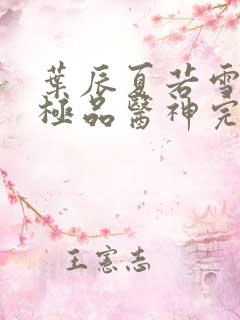 葉辰夏若雪
極品醫神完
王憲志